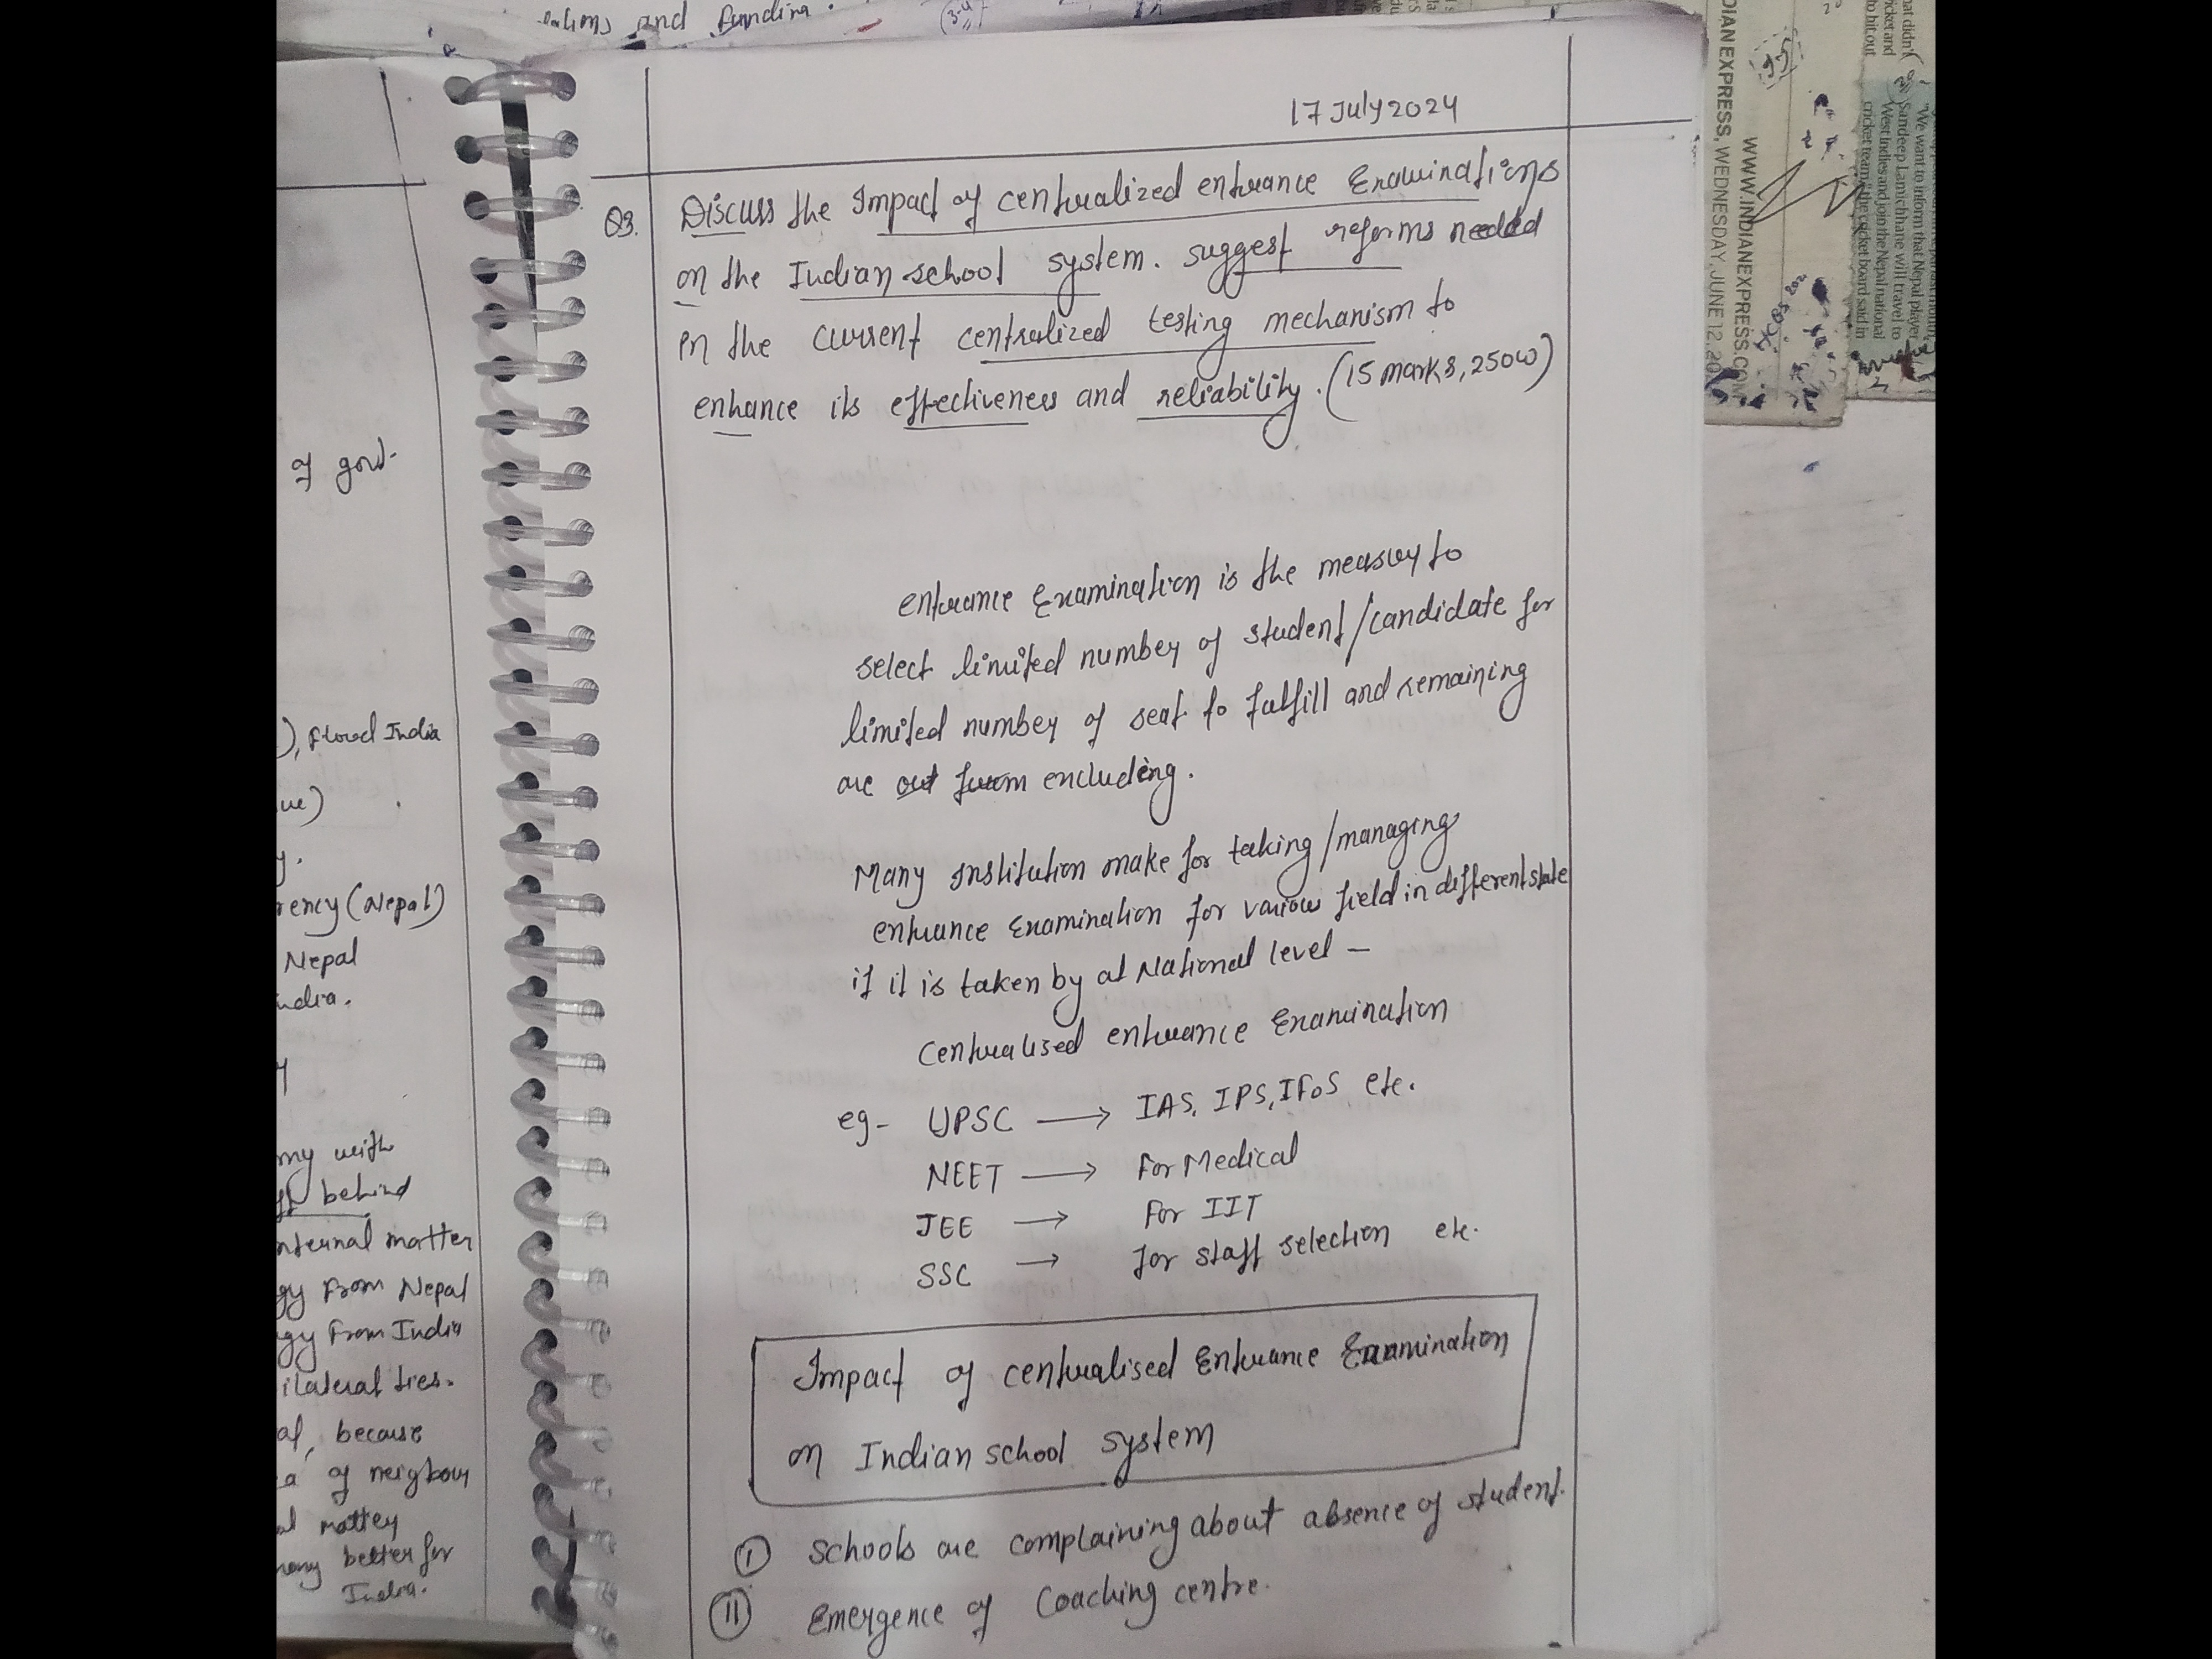 and funding.
17 July 2024
Q3. Discuss the Impact of centralized entrance Examinations
on the Indian school system. suggest reforms needed
in the current centralized testing mechanism to
enhance its effectiveness and reliability. (15 marks, 250w)
entrance Examination is the measuy to
select limited numbey of student/candidate for
limited numbey of seat to fulfill and remaining
are out from encluding.
Many Institution make for taking/managing
entrance Examination for various field in different state
if it is taken by at National level —
Centralised entrance Examination
eg- UPSC → IAS, IPS, IFoS etc.
NEET → For Medical
JEE → For IIT
SSC → for staff selection etc.
Impact of centralised Entrance Examination
on Indian school system
I Schools are complaining about absence of student.
II Emergence of Coaching centre.
of govt-
), flowed India
ue)
y.
rency (Nepal)
Nepal
ndia.
my with
behind
nternal matter
gy From Nepal
gy From India
ilateral ties.
al, because
a of neigbour
al mattey
many better for
India.
DIAN EXPRESS, WEDNESDAY, JUNE 12, 20
WWW.INDIANEXPRESS.COM
hat didn't
icket and
to hit out
"We want to inform that Nepal player
Sandeep Lamichhane will travel to
West Indies and join the Nepal national
cricket team," the cricket board said in